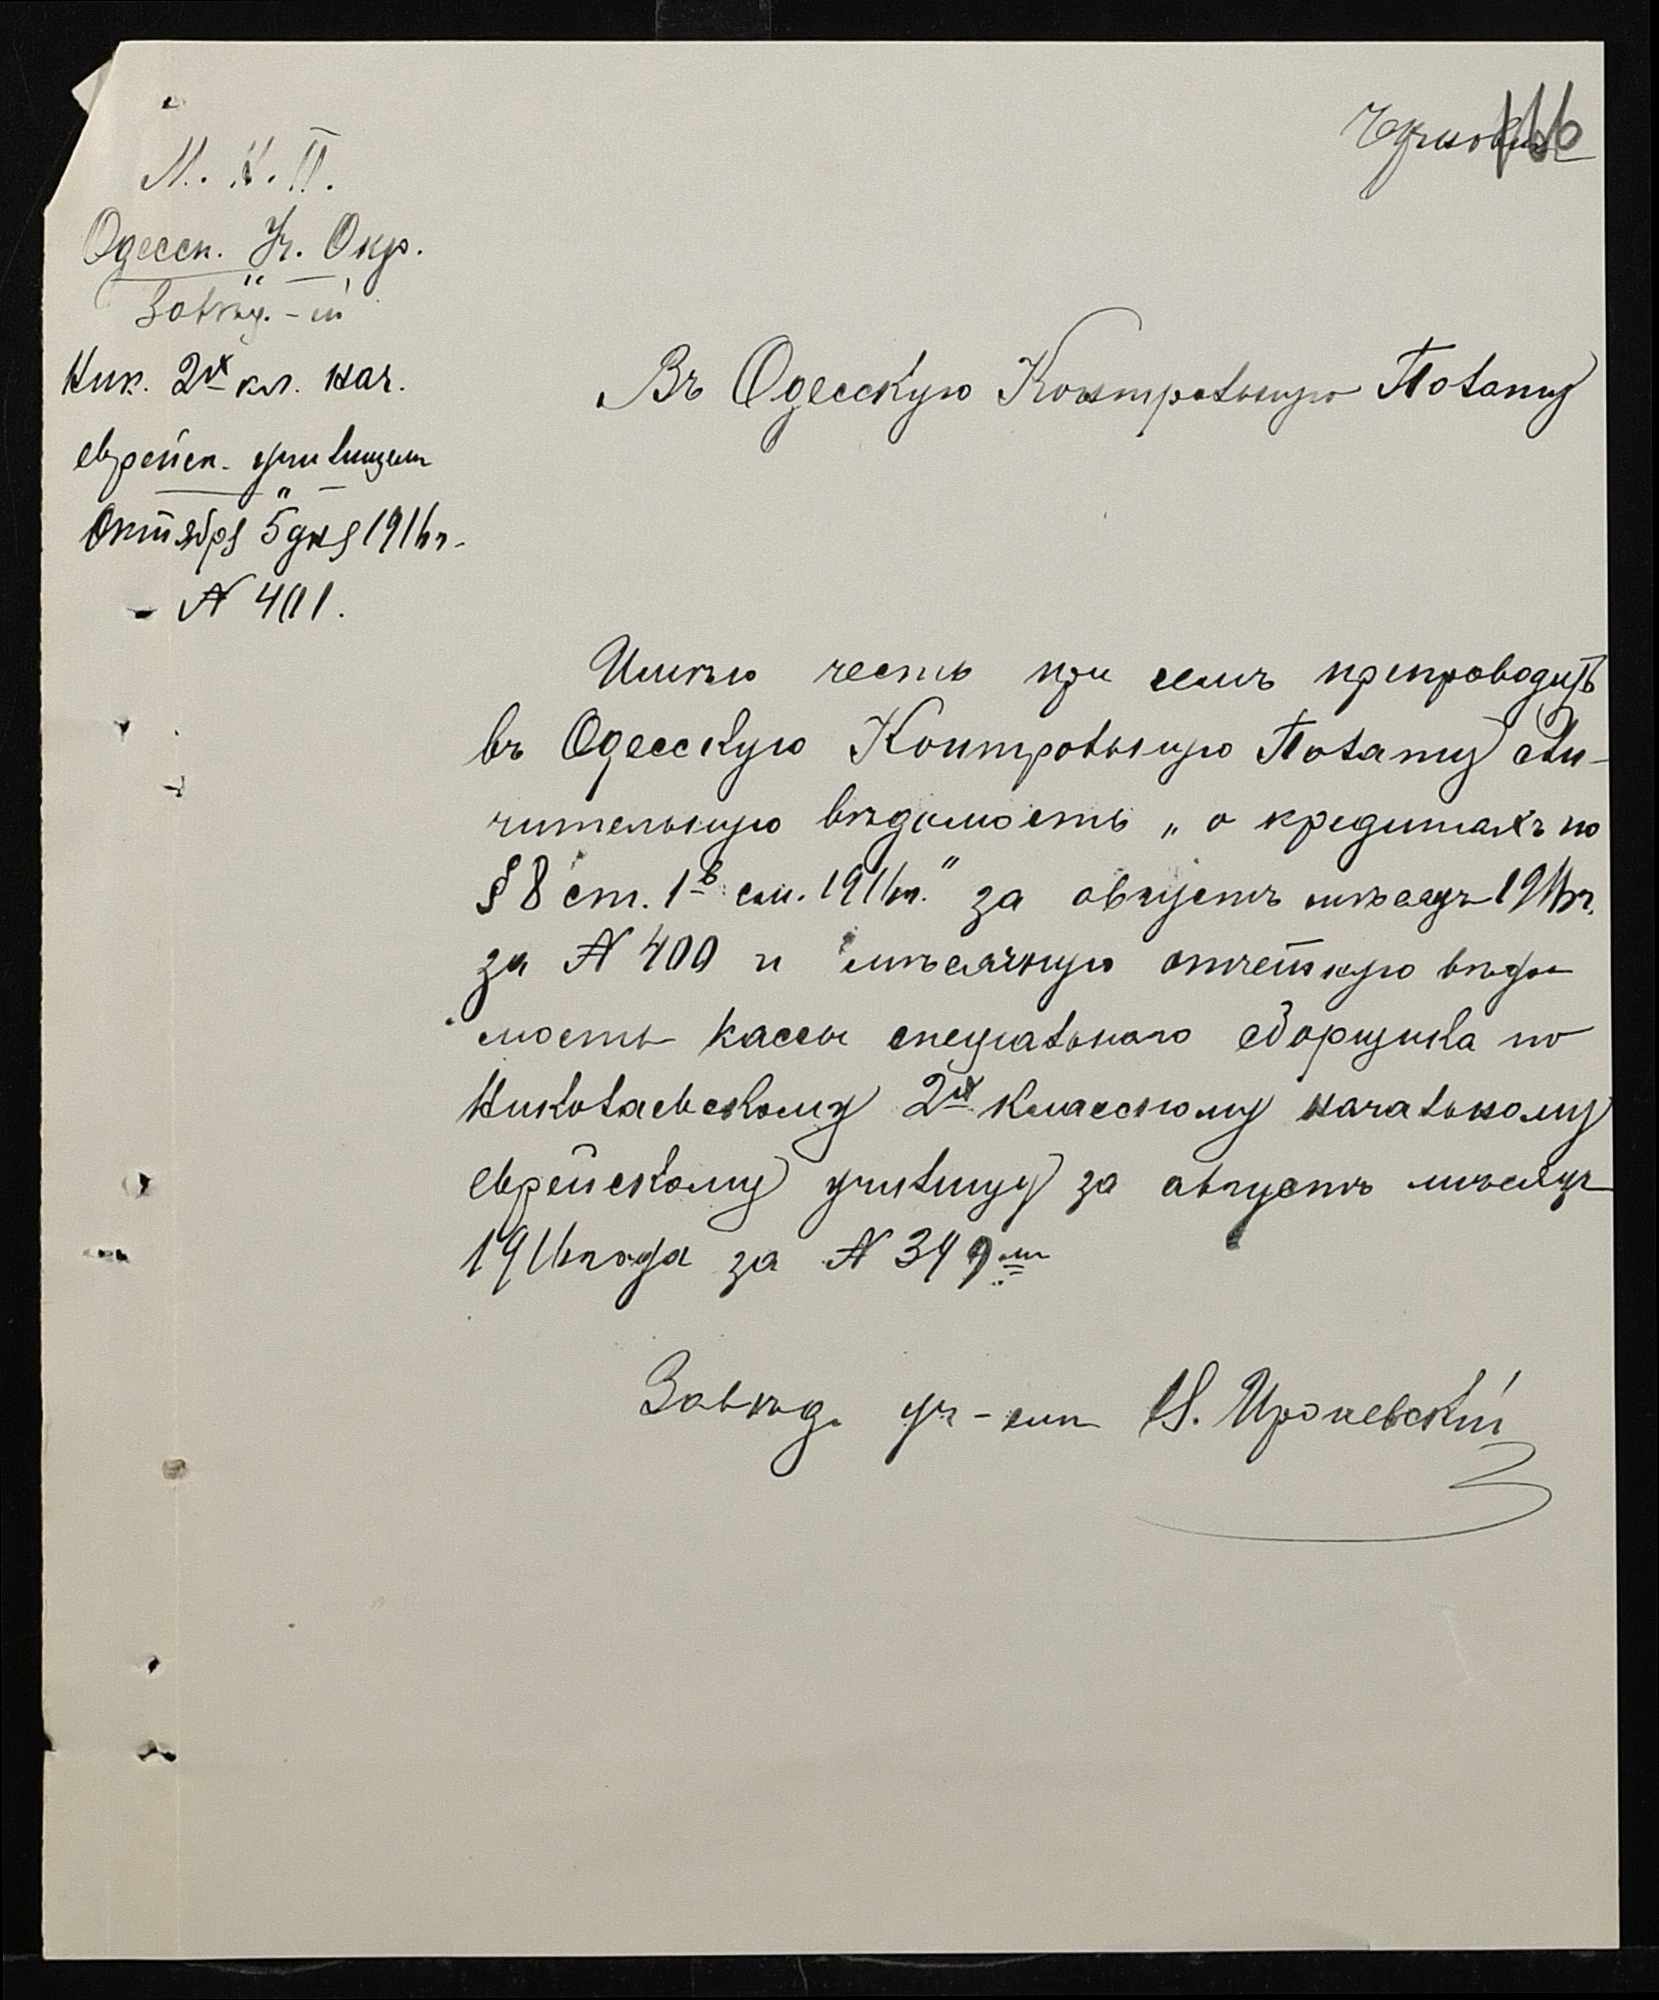 Черновикъ
166
М. Н. П.
Одесск. Уч. Окр.
Завѣд.-ій
Ник. 2х кл. нач.
еврейск. училищемъ
Октября 5 дня 1916 г.
№ 401.
Въ Одесскую Контрольную Палату
Имѣю честь при семъ препроводить
въ Одесскую Контрольную Палату сли-
чительную вѣдомость „о кредитахъ по
§ 8 ст. 1в см. 1916 г." за августъ мѣсяцъ 1916 г.
за № 400 и мѣсячную отчетную вѣдо
мость кассы спеціальнаго сборщика по
Николаевскому 2х классному начальному
еврейскому училищу за августъ мѣсяцъ
1916 года за № 349
Завѣд. уч-емъ